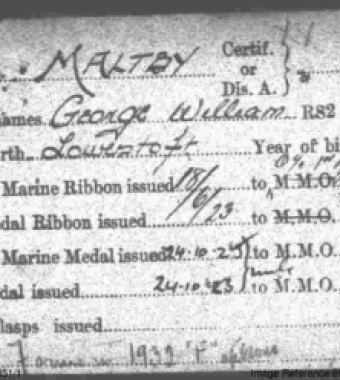 MALTBY Certif.
or
Dis. A.
ames George William RS2
rth Lowestoft Year of bi
Marine Ribbon issued 18/6/23 to M.M.O.
dal Ribbon issued to M.M.O.
Marine Medal issued 24-10-23 to M.M.O.
dal issued 24-10-23 to M.M.O.
lasps issued
1932 "F"
Image Reference